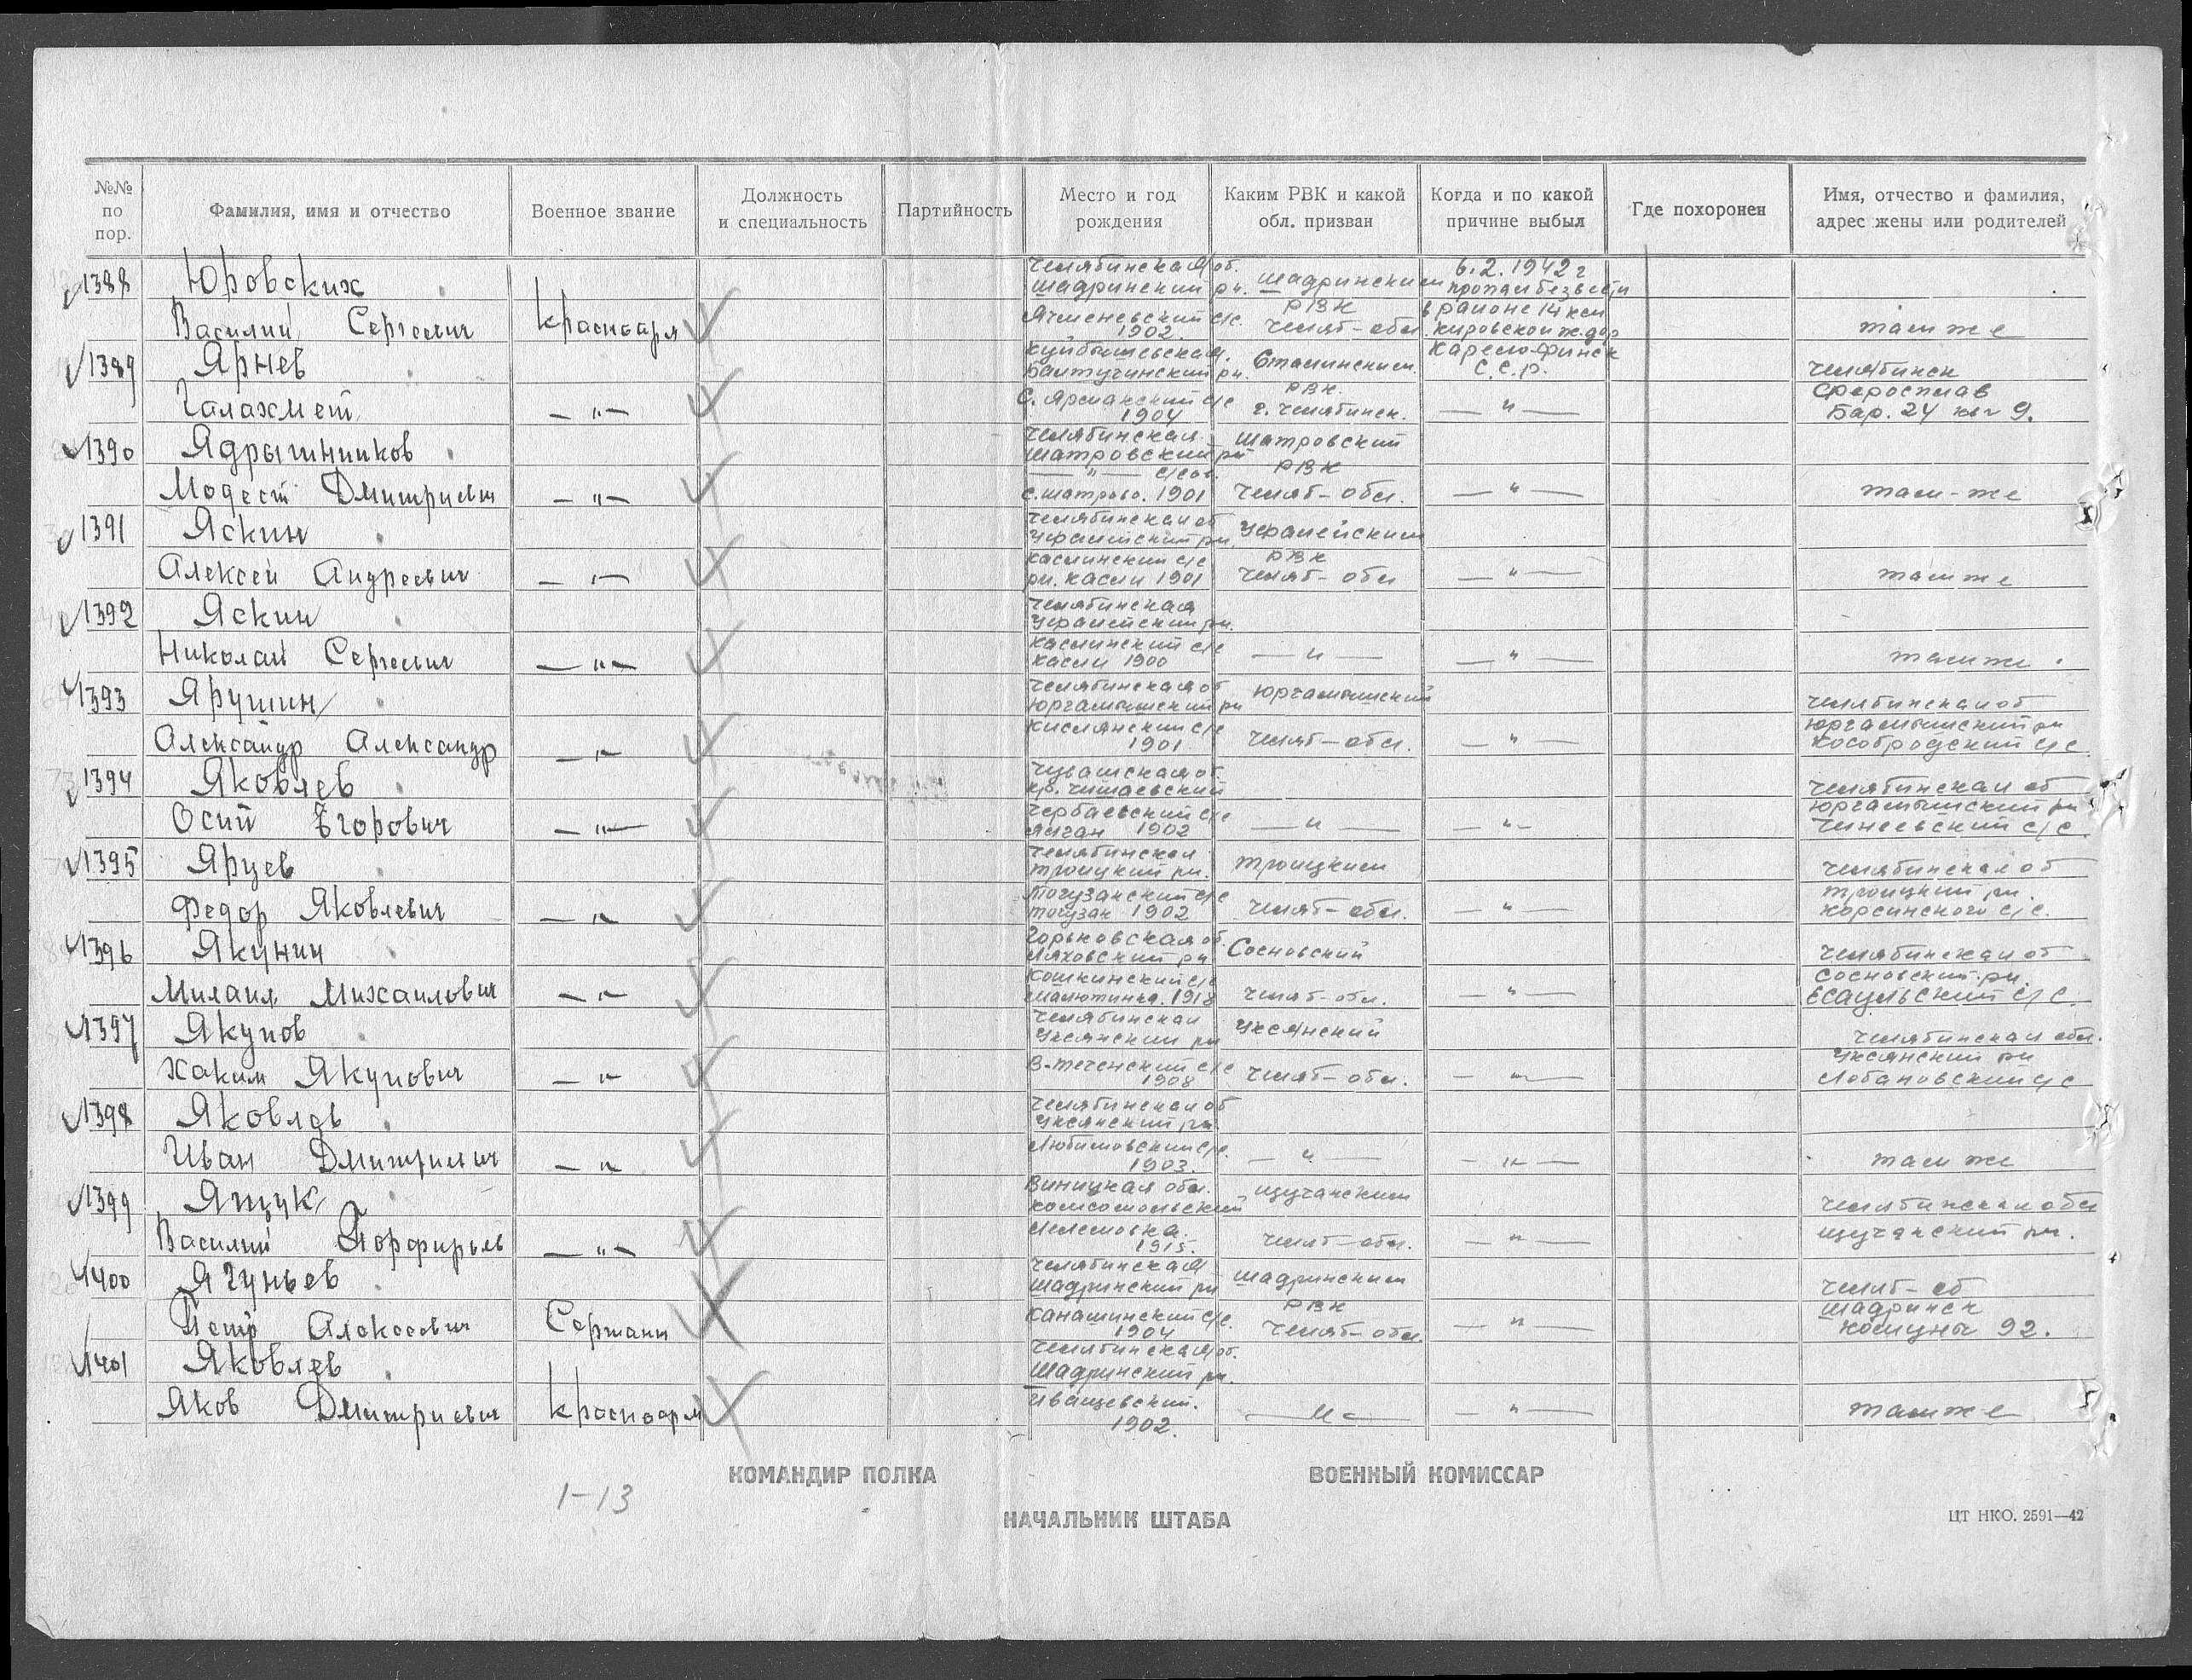 №№ по пор.
Фамилия, имя и отчество
Военное звание
Должность и специальность
Партийность
Место и год рождения
Каким РВК и какой обл. призван
Когда и по какой причине выбыл
Где похоронен
Имя, отчество и фамилия, адрес жены или родителей
1388 Юровских Челябинская об. 6.2.1942 г
Шадринский рн. Шадринским пропал без вести
Василий Сергеевич Красноарм РВК в районе 14 км
1902. Челяб-обл. Кировской ж.дор там же
1389 Ярнев Куйбышевская. Сталинским Карело-Финск Челябинск
рн. С.С.Р.
Галахмет — " — РВК. Ферросплав
1904 г. Челябинск. — " — Бар. 24 кв 9.
1390 Ядрышников Челябинская Шатровский
Шатровский рн РВК
Модест Дмитриевич — " — — " — с/сов.
с. Шатрово. 1901 Челяб-обл. — " — там-же
1391 Яскин Челябинская об Уфалейским
Уфалейский рн.
Алексей Андреевич — " — Каслинский с/с РВК
рн. Касли 1901 Челяб-обл — " — там же
1392 Яскин Челябинская
Уфалейский рн.
Николай Сергеевич — " — Каслинский с/с
Касли 1900 — " — — " — там же.
1393 Ярушин Челябинская об Юргамышский Челябинская об
Юргамышский рн Юргамышский рн
Александр Александр — " — Кислянский с/с
1901. Челяб-обл. — " — Кособродский с/с
1394 Яковлев Чувашская об. Челябинская об
Юргамышский рн
Осип Егорович — " — с/с
1902 — " — — " — Чинеевский с/с
1395 Ярцев Челябинская Троицким Челябинская об
Троицкий рн. Троицкий рн.
Федор Яковлевич — " — Тогузанский с/с
Тогузак 1902 Челяб-обл. — " — с/с.
1396 Якунин Горьковская об. Сосновский Челябинская об
Ляховский рн Сосновский рн.
Михаил Михаилович — " — Кошкинский с/с
1918 Челяб-обл. — " — Есаульский с/с.
1397 Якупов Челябинская Уксянский Челябинская обл.
Уксянский рн Уксянский рн
Хаким Якупович — " — В-Теченский с/с
1908 Челяб-обл. — " — Лобановский с/с
1398 Яковлев Челябинская об
Уксянский рн.
Иван Дмитриевич — " — Любимовский с/с.
1903. — " — — " — там же
1399 Ящук Виницкая обл. Щучанским Челябинская обл
Комсомольский Щучанский рн.
Василий Порфирьев — " —
1915. Челяб-обл. — " —
1400 Ягуньев Челябинская Шадринским Челяб-об
Шадринский рн Шадринск
Петр Алексеевич Сержант Канашинский с/с. РВК
1904 Челяб-обл. — " — Комуны 92.
1401 Яковлев Челябинская об.
Шадринский рн.
Яков Дмитриевич Красноарм Иващевский.
1902. — " — — " — там же
КОМАНДИР ПОЛКА
ВОЕННЫЙ КОМИССАР
1-13
НАЧАЛЬНИК ШТАБА
ЦТ НКО. 2591—42